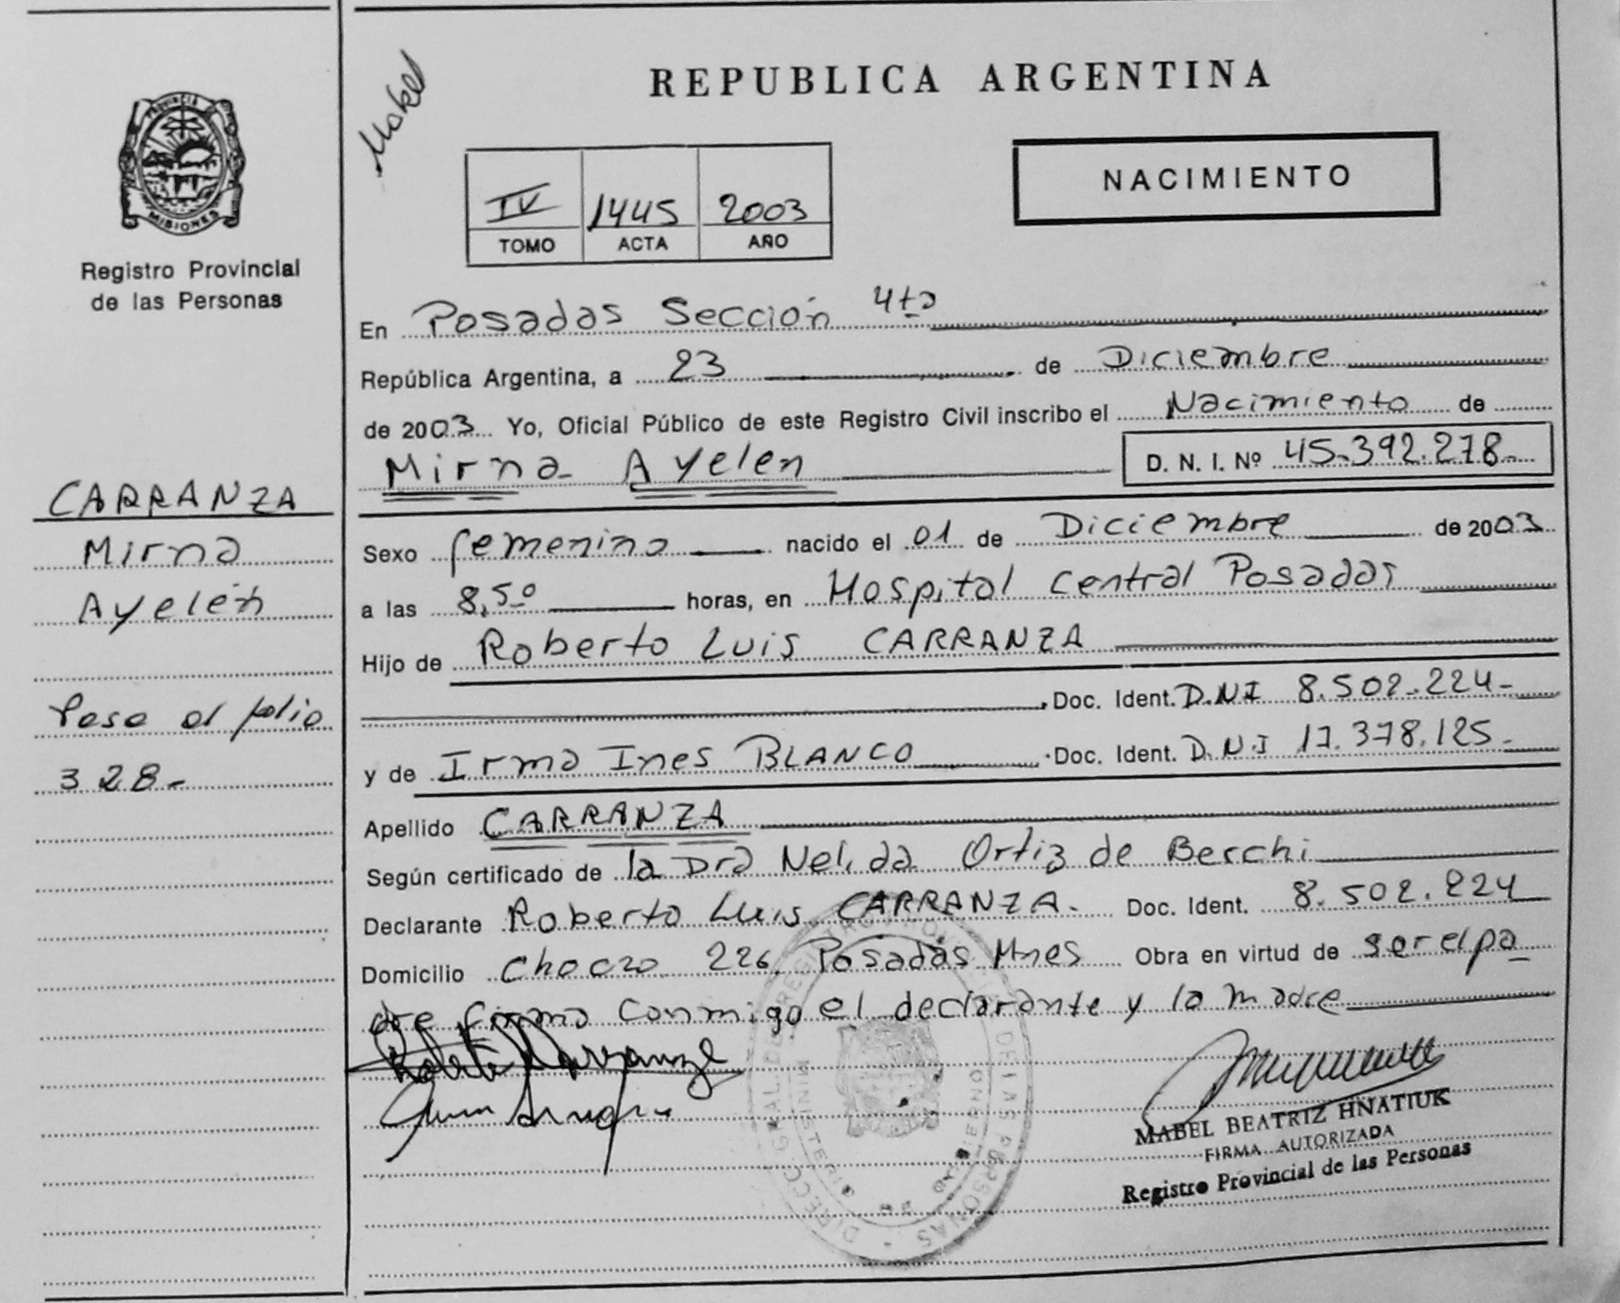 Mabel
REPUBLICA ARGENTINA
PROVINCIA DE
MISIONES
Registro Provincial
de las Personas
IV 1445 2003
TOMO ACTA AÑO
NACIMIENTO
En Posadas Sección 4ta
República Argentina, a 23 de Diciembre
de 2003 Yo, Oficial Público de este Registro Civil inscribo el Nacimiento de
Mirna Ayelen D. N. I. Nº 45.392.278-
Sexo femenino nacido el 01 de Diciembre de 2003
a las 8,50 horas, en Hospital Central Posadas
Hijo de Roberto Luis CARRANZA
Doc. Ident. D.N.I 8.502.224-
y de Irma Ines BLANCO Doc. Ident. D.N.I 17.378.125-
Apellido CARRANZA
Según certificado de la Dra Nelida Ortiz de Berchi
Declarante Roberto Luis CARRANZA- Doc. Ident. 8.502.224
Domicilio Chaco 226, Posadas Mnes Obra en virtud de ser el pa
dre firma conmigo el declarante y la madre
CARRANZA
Mirna
Ayelén
Pasa al folio
328-
MABEL BEATRIZ HNATIUK
FIRMA AUTORIZADA
Registro Provincial de las Personas